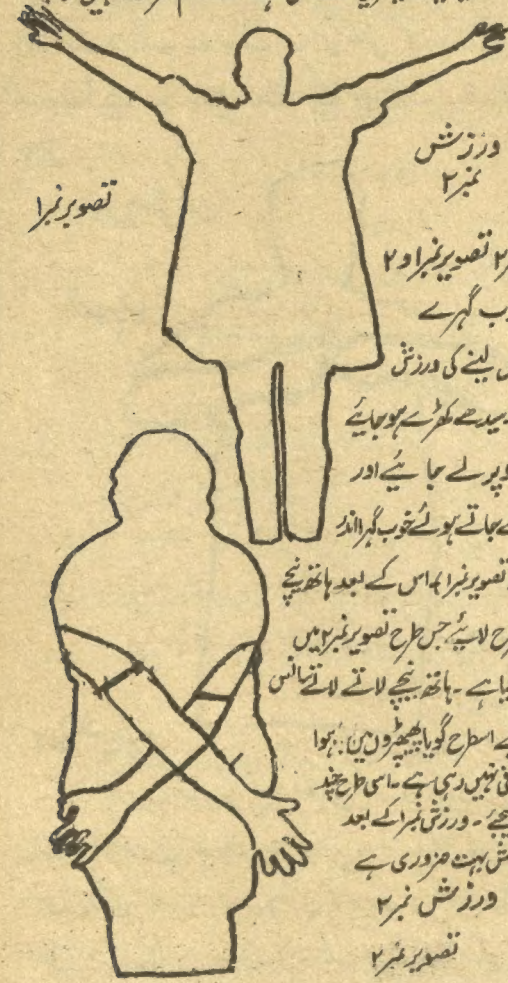 ورزش
نمبر ۲
تصویر نمبر ۱
۲ تصویر نمبر ۱ و ۲
گہرے
لینے کی ورزش
سیدھے کھڑے ہو جائیے
اوپر لے جائیے اور
جاتے ہوئے خوب گہرا اندر
تصویر نمبر ۱) اس کے بعد ہاتھ نیچے
لایئے جس طرح تصویر نمبر ۲ میں
ہے ۔ ہاتھ نیچے لاتے لاتے سانس
اسطرح گویا پھیپھڑوں میں ہوا
نہیں رہی ہے ۔ اسی طرح چند
ورزش نمبر ۱ کے بعد
بہت ضروری ہے
ورزش نمبر ۲
تصویر نمبر ۲